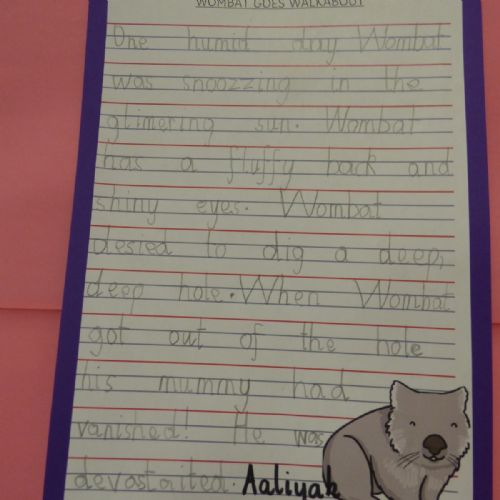 WOMBAT GOES WALKABOUT
One humid day Wombat
was snoozzing in the
glimering sun. Wombat
has a fluffy back and
shiny eyes. Wombat
desied to dig a deep,
deep hole. When Wombat
got out of the hole
his mummy had
vanished! He was
devastaited. Aaliyah